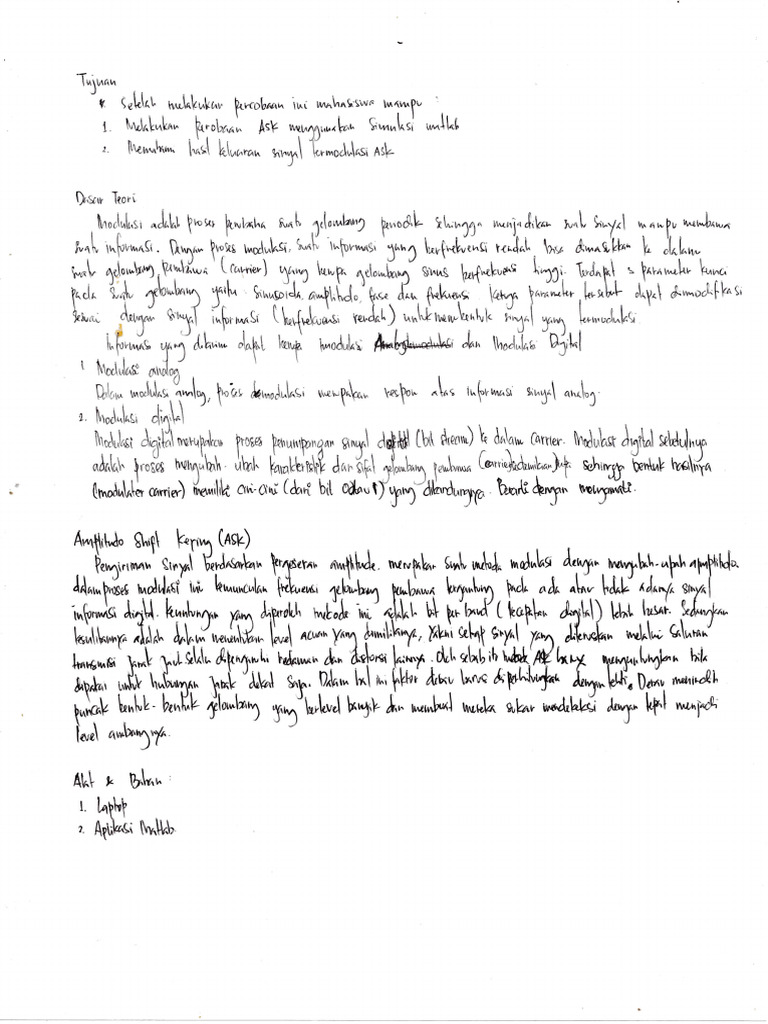 Tujuan
* Setelah melakukan percobaan ini mahasiswa mampu :
1. Melakukan perobaan ASK menggunakan simulasi matlab
2. Memahami hasil keluaran sinyal termodulasi ASK
Dasar Teori
Modulasi adalah proses perubaha suatu gelombang periodik sehingga menjadikan suatu sinyal mampu membawa
suatu informasi. Dengan proses modulasi, suatu informasi yang berfrekuensi rendah bisa dimasukkan ke dalam
suatu gelombang pembawa (carrier) yang berupa gelombang sinus berfrekuensi tinggi. Terdapat 3 parameter kunci
pada suatu gelombang yaitu : sinusoida, amplitudo, fase dan frekuensi. ketiga parameter tersebut dapat dimodifikasi
sesuai dengan sinyal informasi (berfrekuensi rendah) untuk membentuk sinyal yang termodulasi
Informasi yang dikirim dapat berupa modulasi dan Modulasi Digital
1. Modulasi analog
Dalam modulasi analog, proses modulasi merupakan respon atas informasi sinyal analog.
2. Modulasi digital
Modulasi digital merupakan proses penumpangan sinyal digital (bit stream) ke dalam carrier. Modulasi digital sebetulnya
adalah proses mengubah-ubah karakteristik dan sifat gelombang pembawa (carrier) sedemikian rupa sehingga bentuk hasilnya
(modulater carrier) memiliki ciri-ciri (dari bit 0 atau 1) yang dikandungnya. Berarti dengan mengamati.
Amplitudo Shift Keying (ASK)
Pengiriman Sinyal berdasarkan pergeseran amplitude, merupakan suatu metoda modulasi dengan mengubah-ubah amplitudo.
dalam proses modulasi ini kemunculan frekuensi gelombang pembawa tergantung pada ada atau tidak adanya sinyal
informasi digital. Keuntungan yang diperoleh metode ini adalah bit per baud (kecepatan digital) lebih besar. Sedangkan
kesulitannya adalah dalam menentukan level acuan yang dimilikinya, yakni setiap sinyal yang diteruskan melalui saluran
transmisi jarak jauh selalu dipengaruhi redaman dan distorsi lainnya. Oleh sebab itu ASK hanya menguntungkan bila
dipakai untuk hubungan jarak dekat saja. Dalam hal ini faktor derau harus diperhitungkan dengan teliti. Derau menindih
puncak bentuk-bentuk gelombang yang berlevel banyak dan membuat mereka sukar mendeteksi dengan tepat menjadi
level ambangnya.
Alat & Bahan :
1. Laptop
2. Aplikasi Matlab